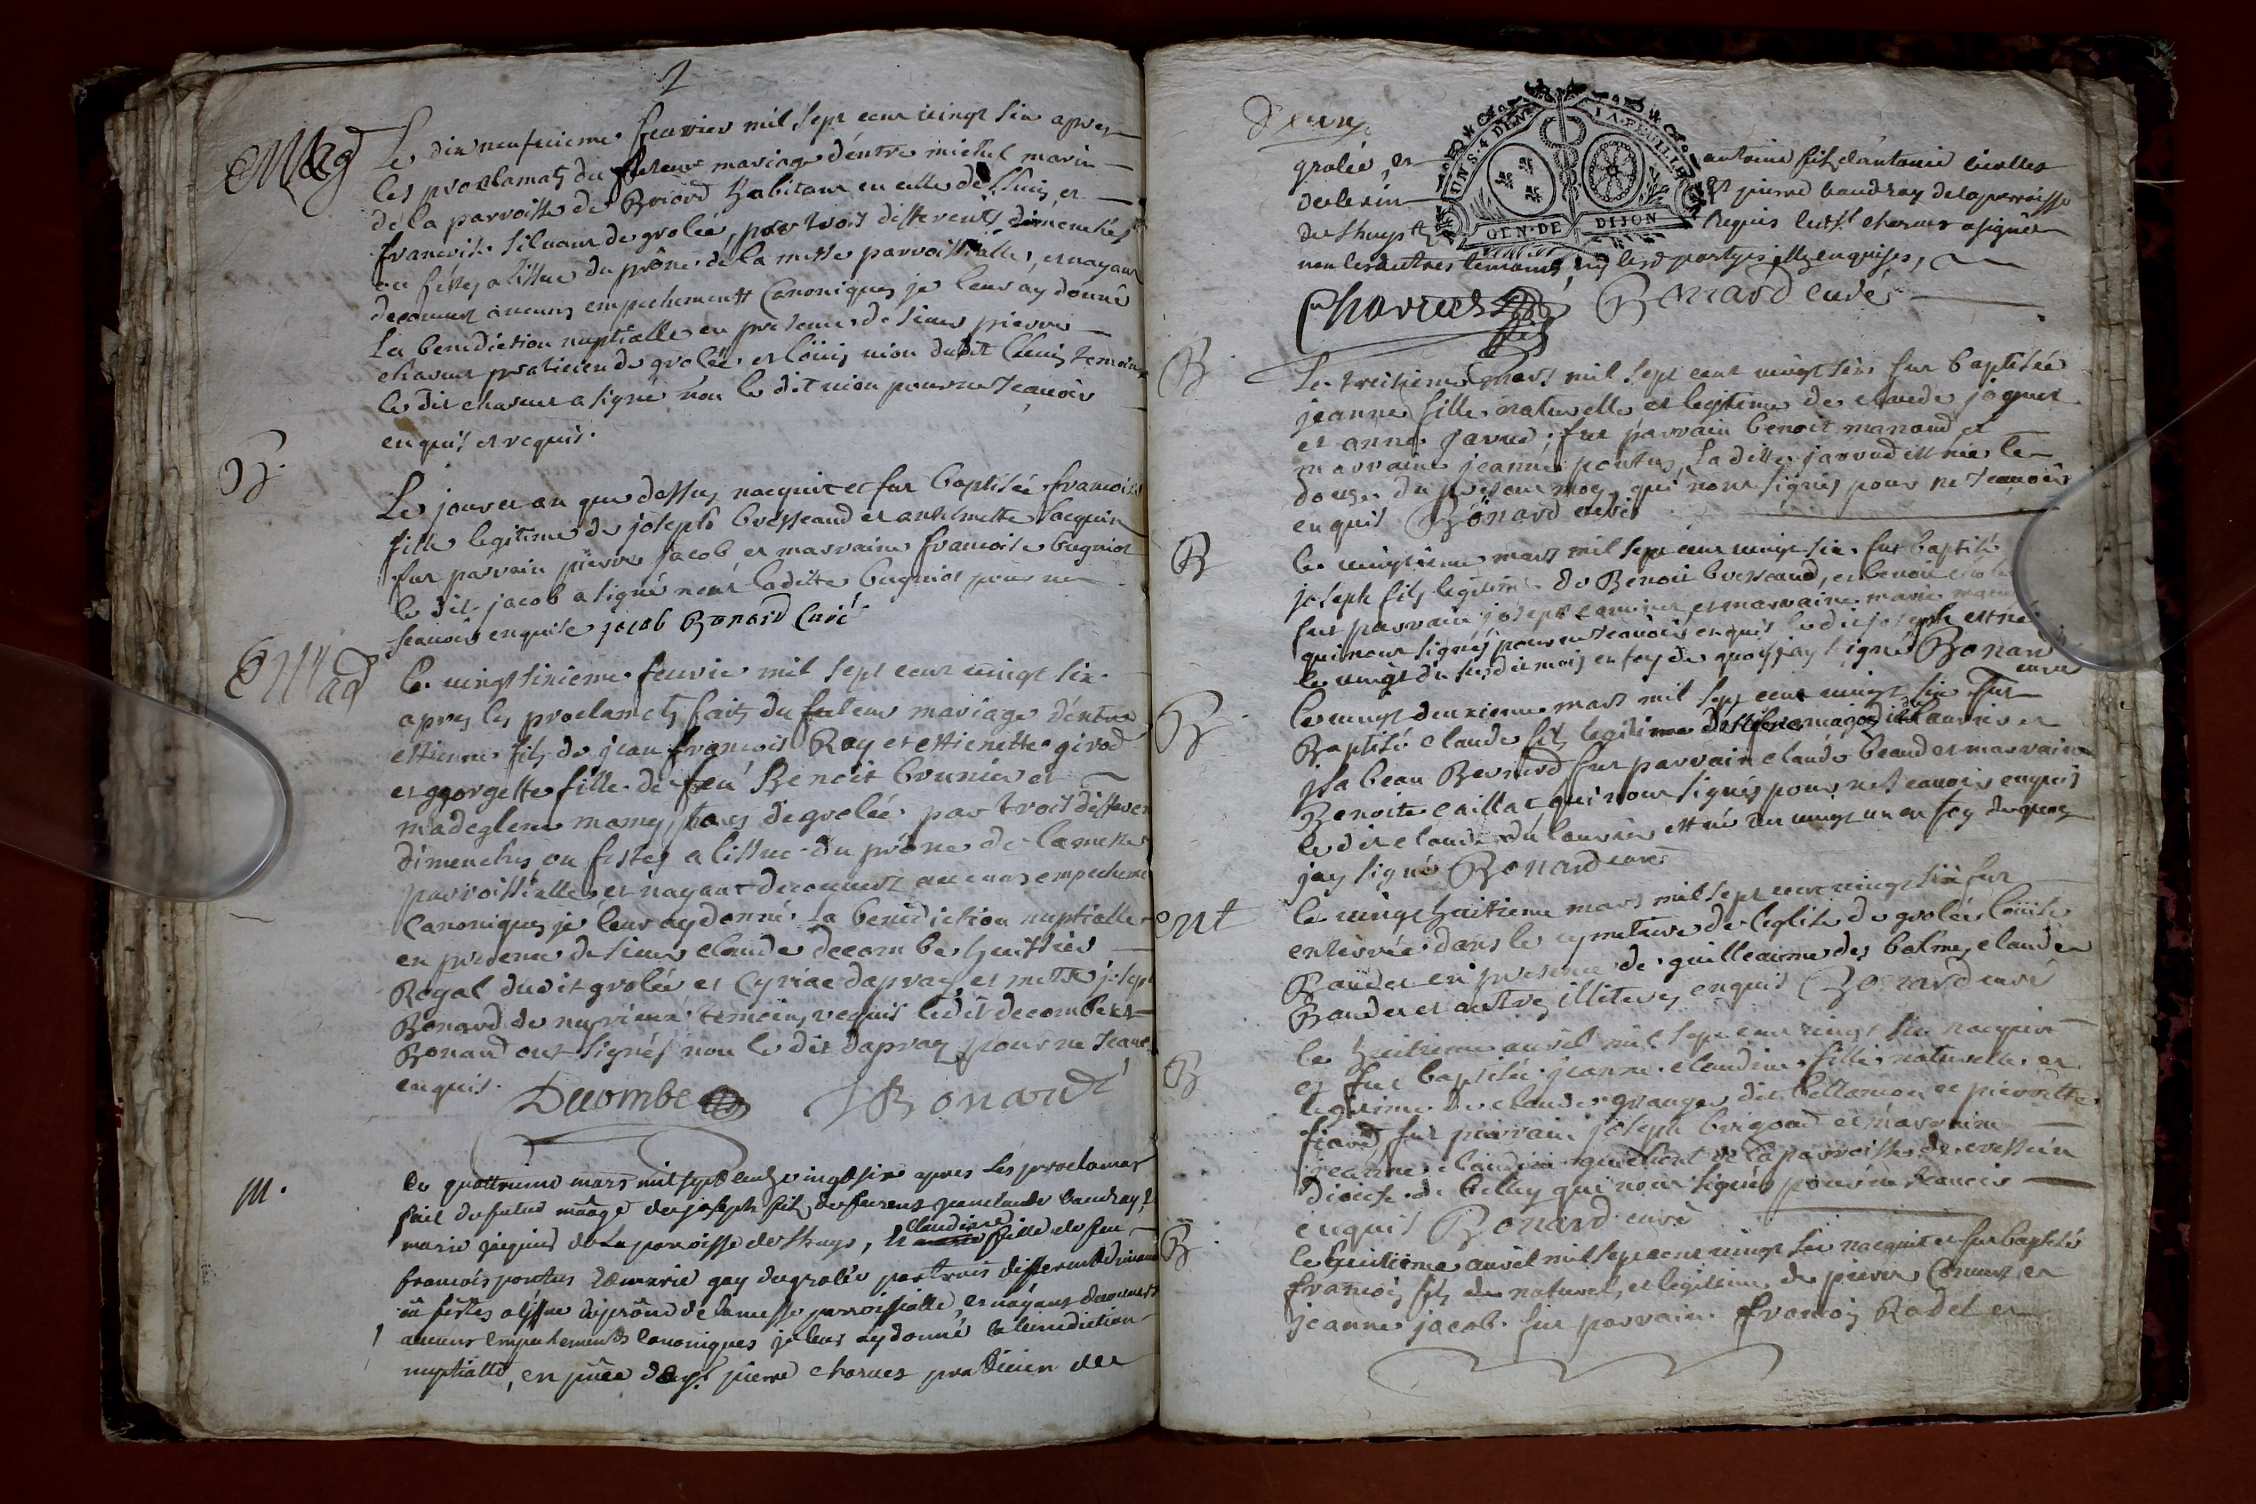 2
Mag
Le dix neufuieme feurier mil sept cent vingt six apres
les proclamats du futeur mariage d'entre michel marin
de la parroisse de Briord habitant en celle de Lhuis et
francoise siluant de grolée, par trois differents dimenches
ou fétes a lissue du prône de la messe parroissialle, et nayant
decouuert aucuns empechements Canoniques je leur ay donné
La benediction nuptialle en presence de sieur pierre
charuet praticien de grolée et Loüis nion dudit Lhuis temoins
le dit charuet a signé non le dit nion pour ne scauoir
enquis et requis.
B.
Le jour et an que dessus nacquit et fut baptisée francoise
fille legitime de joseph bresseaud et anthelmette Jacquin
fut parrain pierre jacob et marraine francoise bugniot
le dit jacob a signé non ladite bugniot pour ne
scauoir enquise jacob Bonard Curé
Mad
Le vingt sixieme feurie mil sept cent vingt six
apres les proclamats faits du futeur mariage d'entre
ettienne fils de jean francois Ray et ettienette girod
et georgette fille de feu Benoit brunier et
madeglene mamy, tous de grolée par trois differens
dimenches ou festes a lissue du prône de la messe
parroissialle et nayant decouuert aucuns empecheme
Canoniques je leur ay donné la benediction nuptialle
en presence de sieur claude decombe huissier
Royal dudit grolée et Cyriac dapray, et messe josept
Bonard de temoins requis ledit decombe et
Bonard ont signés non le dit dapray pour ne scauoi
enquis.
Decombe JBonard
M.
Le quattrieme mars mil sept cent vingt six apres les proclamats
fait du futur mâage de joseph fils de feu jeanclaude baudray, &
marie jaquin de La parroisse de St huys, & claudine fille de feu
françois pontus & marie gay de grolée par trois differents dimanch
ou féstes a lissue du prône de la messe parroissialle, et nayant decouuert
aucuns empechements canoniques je leur ay donné la benediction
nuptialle, en pñce de sr pierre charuet praticien de
Deux.
grolée, et antoine fils d'antoine
pierre baudray de la parroisse
de st huys requis ledit sr charuet a signé
non les autres temoins, ny les partyes illi enquises,
Charuet Bonard curé
GEN·DE DIJON
B
Le treizieme mars mil sept cent vingt six fut baptisée
jeanne fille naturelle et legitime de claude joguet
et anne jarrud; fut parrain benoit manaud et
marraine jeanne pontus, La ditte jarrud est née le
douze du present moy, qui n'ont signés pour ne scauoir
enquis Bonard curé
B
le vingtieme mars mil sept cent vingt six fut baptisé
joseph fils legitime de Benoit bresseaud, et benoite
fut parrain joseph et marraine marie
qui n'ont signés pour ne scauoir enquis le dit joseph est né
le vingt du susdit mois en foy de quoy jay signé Bonard
curé
B
le vingt deuxieme mars mil sept cent vingt six fut
Baptisé claude fils legitime de dit Laurier et
jsabeau Bernard fut parrain claude beaud et marraine
Benoite caillat, qui n'ont signés pour ne scauoir enquis
le dit claude du laurier est né du vingt un en foy dequoy
jay signé Bonard curé
Mt
le vingt huitieme mars mil sept cent vingt six fut
enterrée dans le cymetiere de leglise de grolée loüise
Baudet en presence de guilleaume des balmes claude
Baudet et autres illiteres enquis Bonard curé
B
le huitieme auril mil sept cent vingt six nacquit
et fut baptisée jeanne claudine fille naturelle et
legitime de claude granger dit bellemon et pierrette
fiard fut parrain joseph brigand et marraine
jeanne claudine de la parroisse de cressieu
diocese de belley qui n'ont signés pour ne scauoir
enquis Bonard curé
B
le huitieme auril mil sept cent vingt six nacquit et fut baptisé
francois fils naturel, et legitime de pierre Conuert et
jeanne jacob. fut parrain francois Radet et